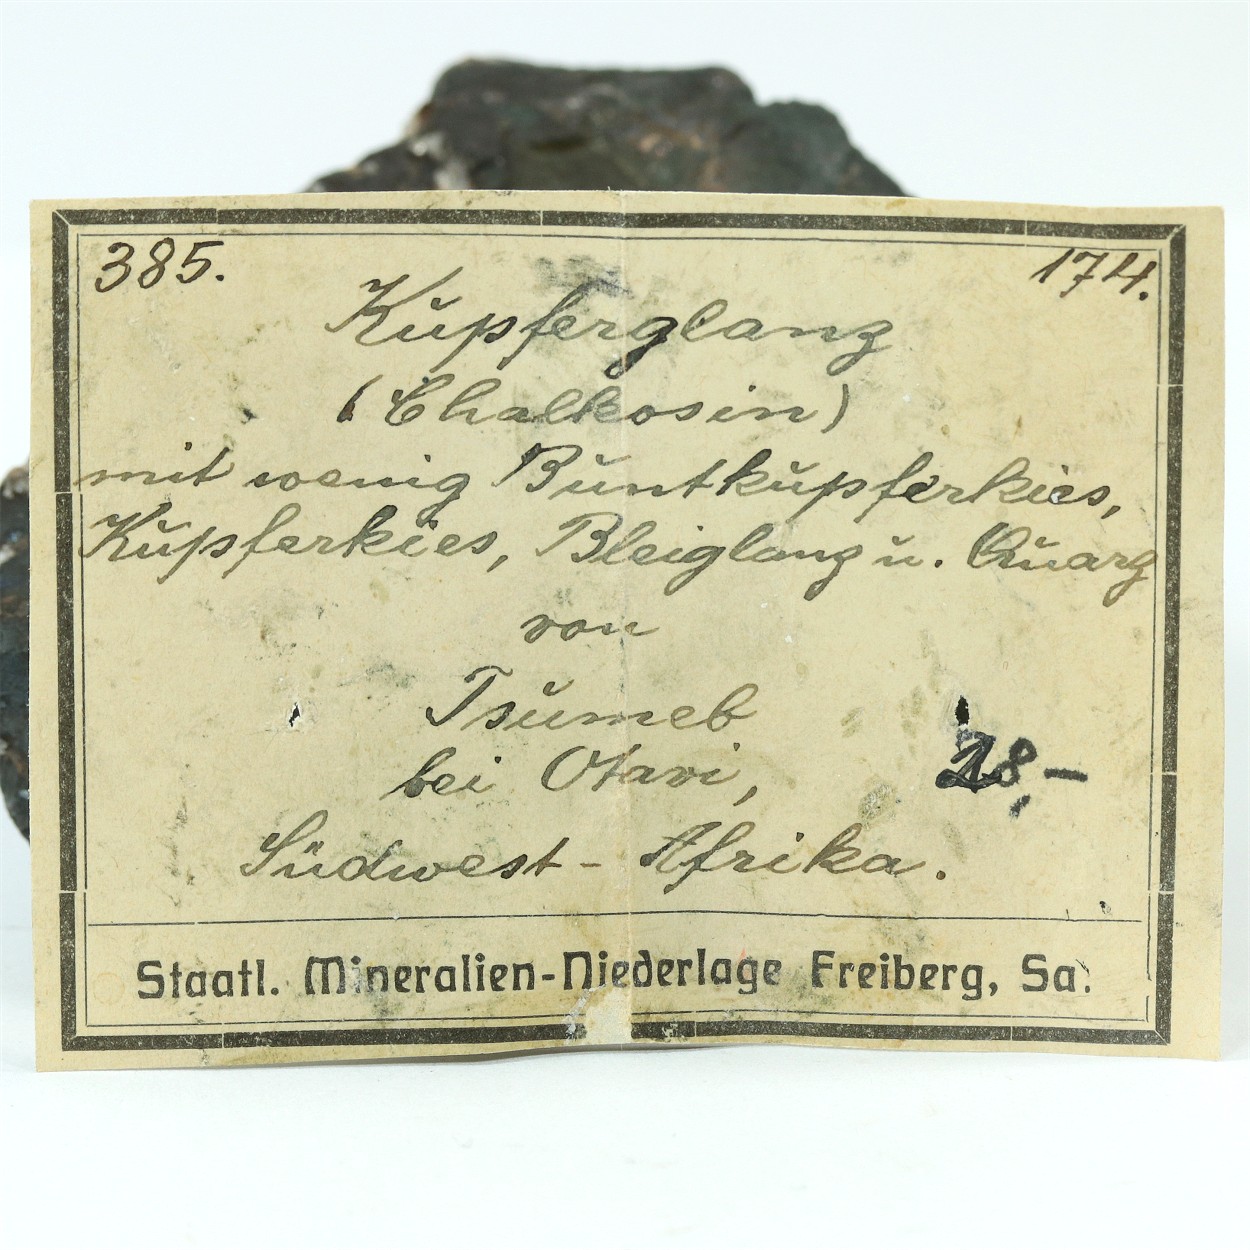 385. 174.
Kupferglanz
(Chalkosin)
mit wenig Buntkupferkies,
Kupferkies, Bleiglanz u. Quarz
von
Tsumeb
bei Otavi,
28,-
Südwest-Afrika.
Staatl. Mineralien-Niederlage Freiberg, Sa.